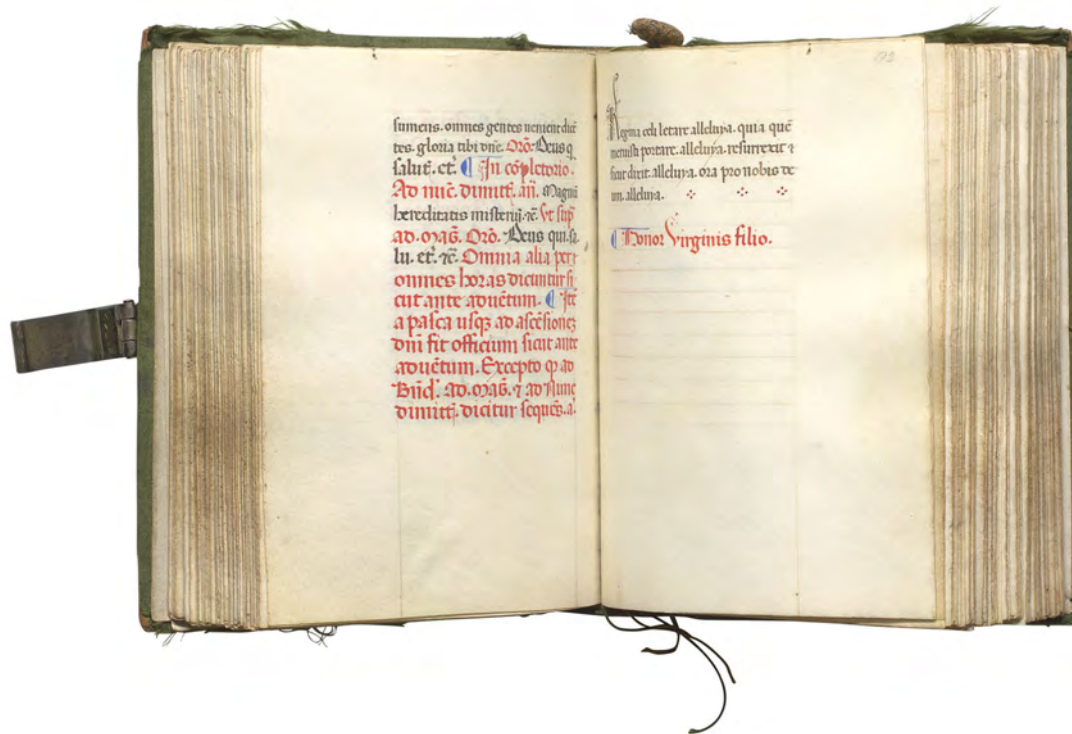 sumens. omnes gentes uenient dicē
tes. gloria tibi dn̄e. Orō. Deus q
salut̄. et̄. ¶ In cōpletorio.
Ad nūc. dimitt̄. an̄. Magnū
hereditatis misteriū. ⁊c̄. Vt sup̄
ad. maḡ. Orō. Deus qui. sa
lu. et̄. ⁊c̄. Omnia alia per
omnes horas dicuntur si
cut ante aduētum. ¶ Itē
a pasca usqꝫ ad ascēsionēꝫ
dn̄i fit officium sicut ante
aduētum. Excepto ꝙ ad
Bn̄d̄. ad. maḡ. ⁊ ad Nunc
dimitt̄. dicitur sequēs. a̅.
Regina celi letare alleluya. quia quē
meruisti portare. alleluya. resurrexit ⁊
sicut dixit. alleluya. ora pro nobis de
um. alleluya.
¶ Honor Virginis filio.